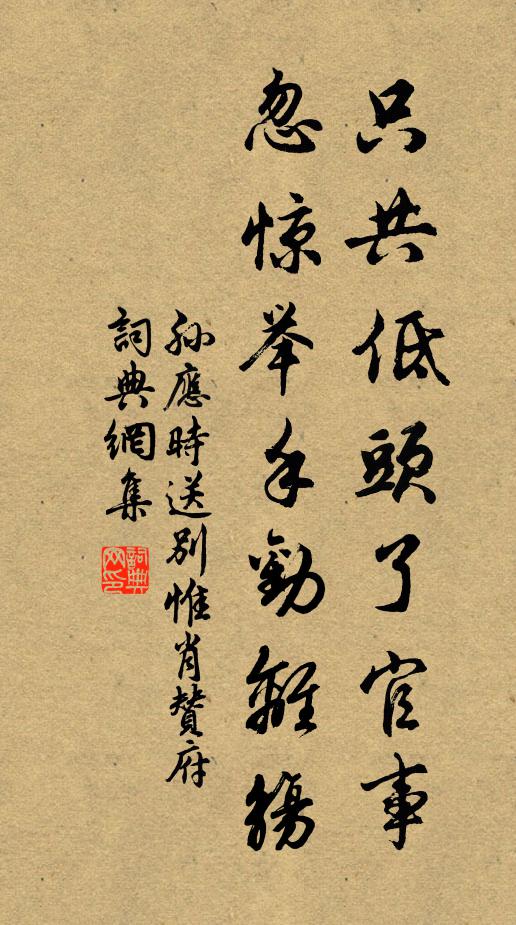 只共低頭了官事
忽惊举手勸離觴
孙應時送别惟肖賛府
詞典網集
詞典
网印